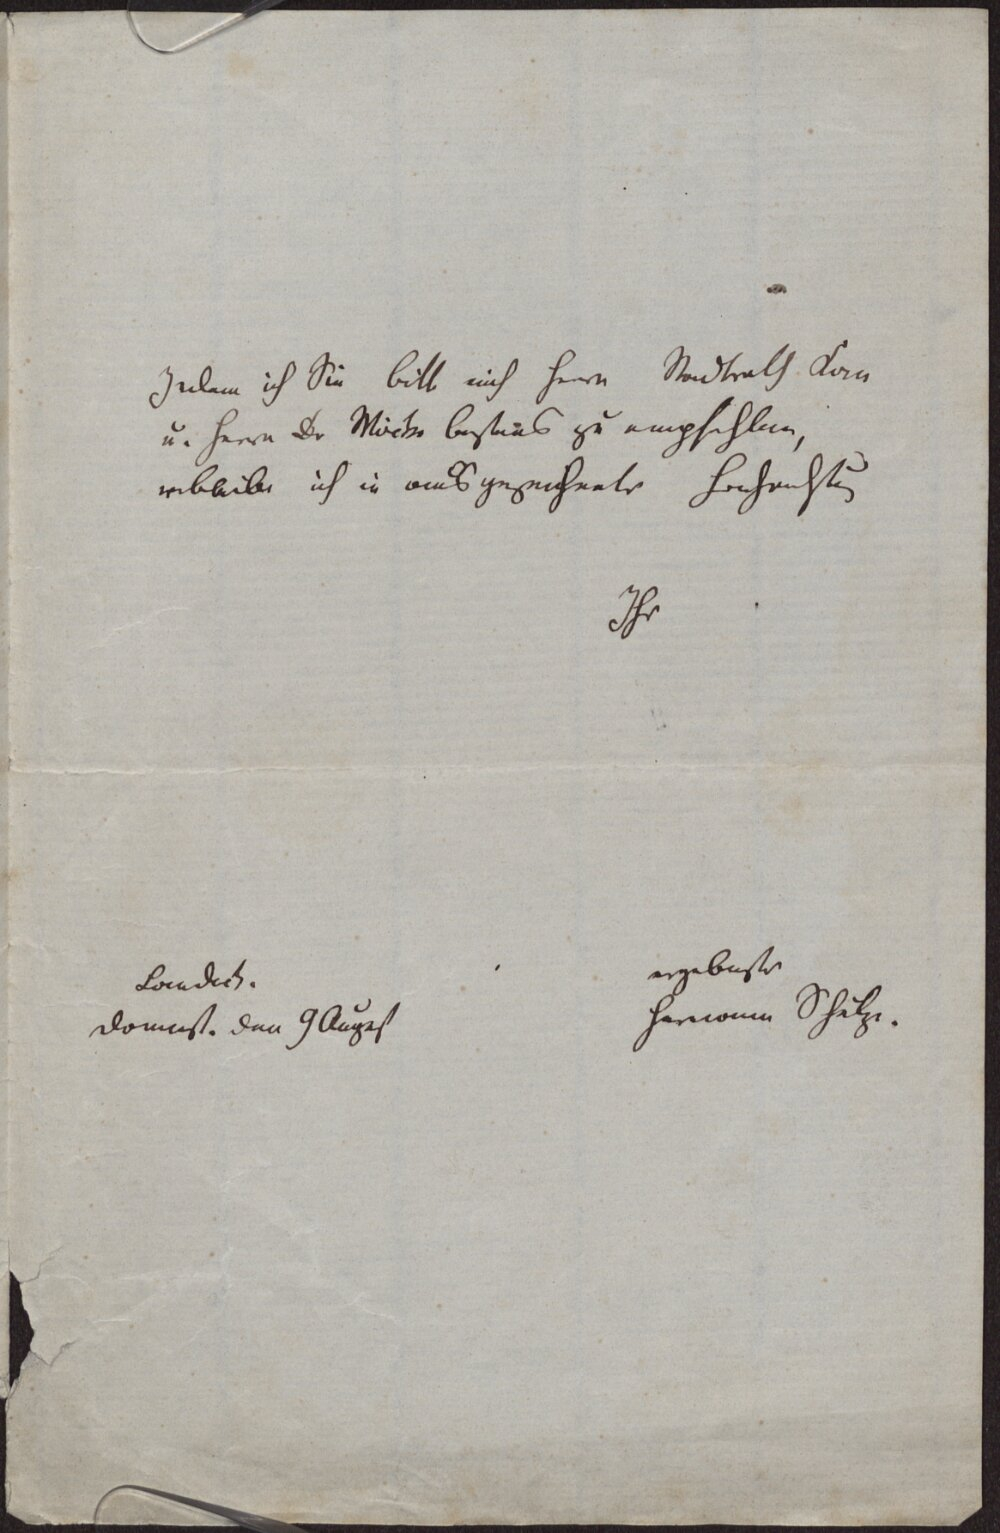 Indem ich Sie bitte mich Herrn Stadtrath Korn
u. Herrn Dr bestens zu empfehlen,
verbleibe ich in ausgezeichneter Hochachtung
Ihr
ergebenster
Hermann Schulze.
Landeck.
Donnerst. den 9 August